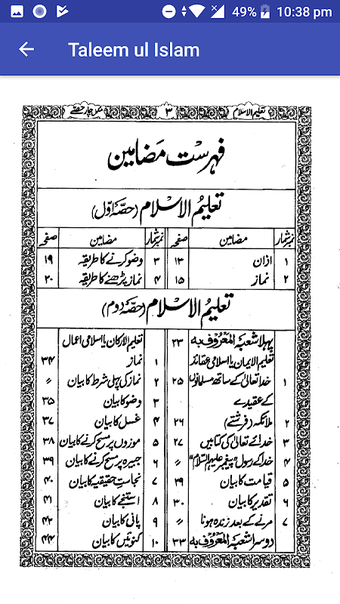 49% 10:38 pm
Taleem ul Islam
تعلیم الاسلام ۳ مکمل چار حصے
فہرست مضامین
تعلیم الاسلام (حصّہ اوّل)
نمبر شمار مضامین صفحہ نمبر شمار مضامین صفحہ
۱ اذان ۱۳ ۳ وضو کرنے کا طریقہ ۱۹
۲ نماز ۱۵ ۴ نماز پڑھنے کا طریقہ ۲۰
تعلیم الاسلام (حصّہ دوم)
پہلا شعبۃ المعروف بہ ۲۳ تعلیم الارکان یا اسلامی اعمال
تعلیم الایمان یا اسلامی عقائد ۱ نماز ۳۴
۱ خدا تعالیٰ کے ساتھ مسلمانوں ۲۵ ۲ نماز کی پہلی شرط کا بیان 〃
کے عقیدے ۳ وضو کا بیان ۳۵
۲ ملائکہ (فرشتے) ۲۶ ۴ غسل کا بیان ۳۷
۳ خدائے تعالیٰ کی کتابیں ۲۷ ۵ موزوں پر مسح کرنے کا بیان ۳۸
۴ خدا کے رسول "پیغمبر علیہم السلام" 〃 ۶ جبیرہ پر مسح کرنے کا بیان ۳۹
۵ قیامت کا بیان ۲۹ ۷ نجاست حقیقیہ کا بیان ۴۰
۶ تقدیر کا بیان ۳۰ ۸ استنجے کا بیان ۴۱
۷ مرنے کے بعد زندہ ہونا 〃 ۹ پانی کا بیان ۴۳
دوسرا شعبۃ المعروف بہ ۳۳ ۱۰ کنوئیں کا بیان ۴۴